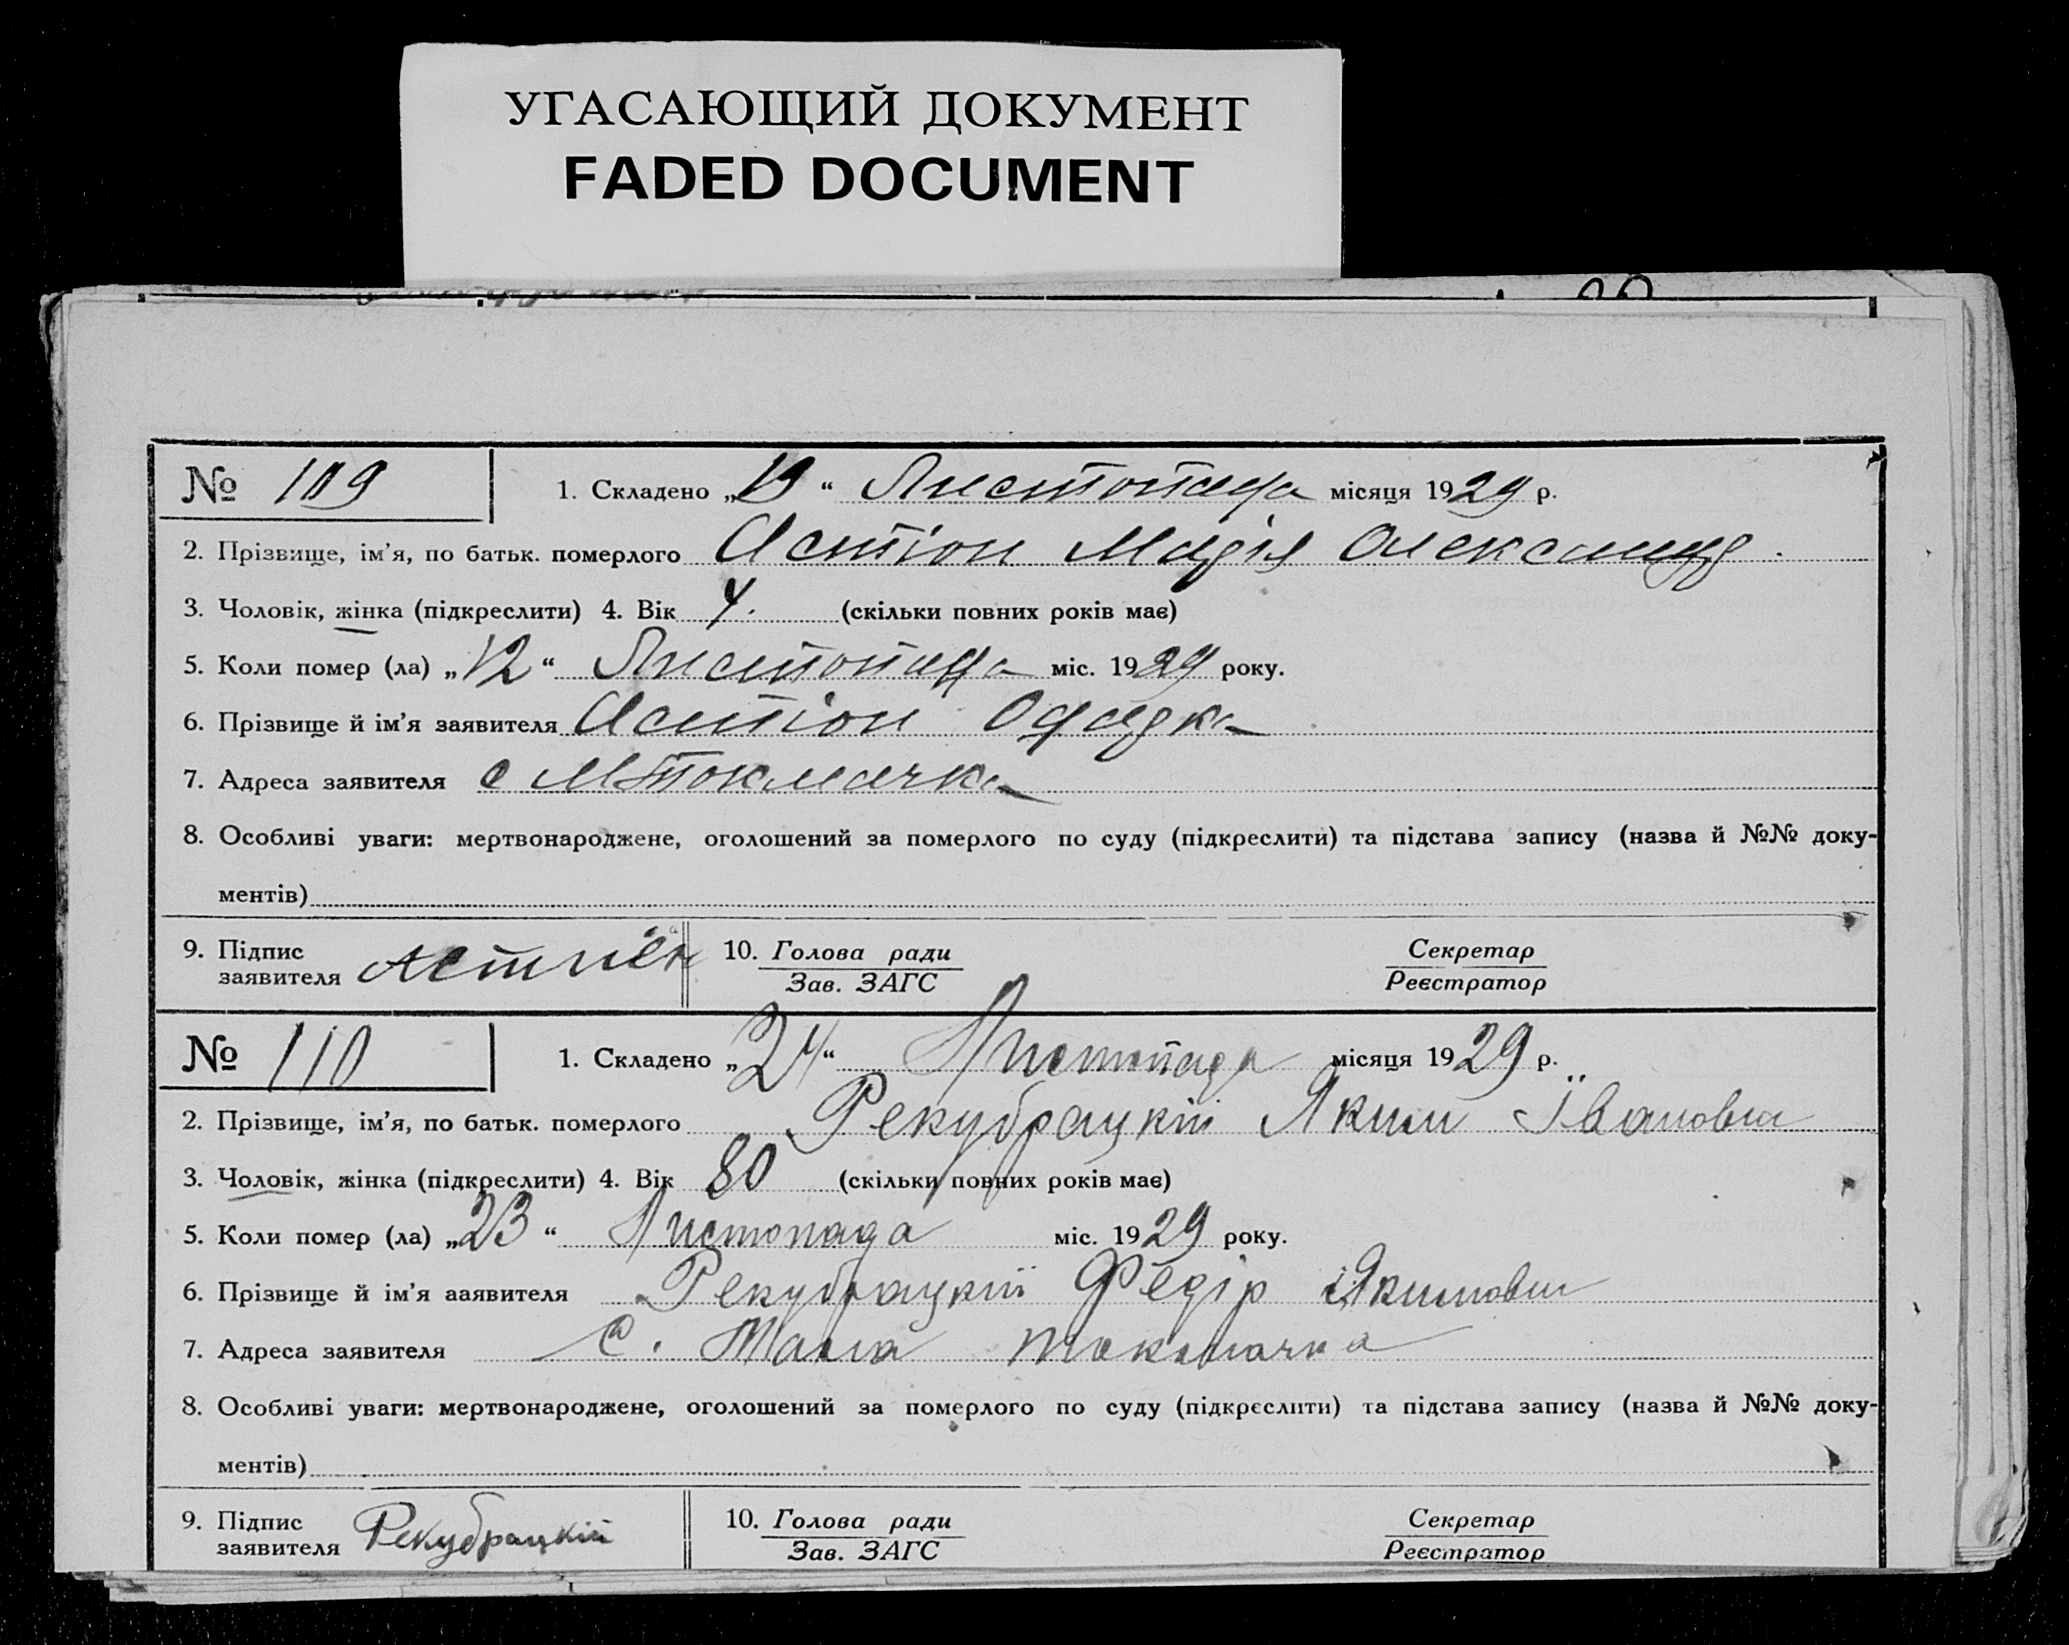 УГАСАЮЩИЙ ДОКУМЕНТ
FADED DOCUMENT
№ 109
1. Складено „19“ Листопада місяця 1929 р.
2. Прізвище, ім’я, по батьк. померлого Астіон Марія Олександр.
3. Чоловік, жінка (підкреслити) 4. Вік 4. (скільки повних років має)
5. Коли помер (ла) „12“ Листопада міс. 1929 року.
6. Прізвище й ім’я заявителя Астіон Одарка
7. Адреса заявителя с МТокмачка
8. Особливі уваги: мертвонароджене, оголошений за померлого по суду (підкреслити) та підстава запису (назва й №№ доку-
ментів)
9. Підпис
заявителя
10. Голова ради
Зав. ЗАГС
Секретар
Реєстратор
№ 110
1. Складено „24“ Листопада місяця 1929 р.
2. Прізвище, ім’я, по батьк. померлого Рекубрацкій Яким Іванович
3. Чоловік, жінка (підкреслити) 4. Вік 80 (скільки повних років має)
5. Коли помер (ла) „23“ Листопада міс. 1929 року.
6. Прізвище й ім’я ааявителя Рекубрацкій Федір Якимович
7. Адреса заявителя с. Мала Токмачка
8. Особливі уваги: мертвонароджене, оголошений за померлого по суду (підкреслити) та підстава запису (назва й №№ доку-
ментів)
9. Підпис
заявителя Рекубрацкій
10. Голова ради
Зав. ЗАГС
Секретар
Реєстратор